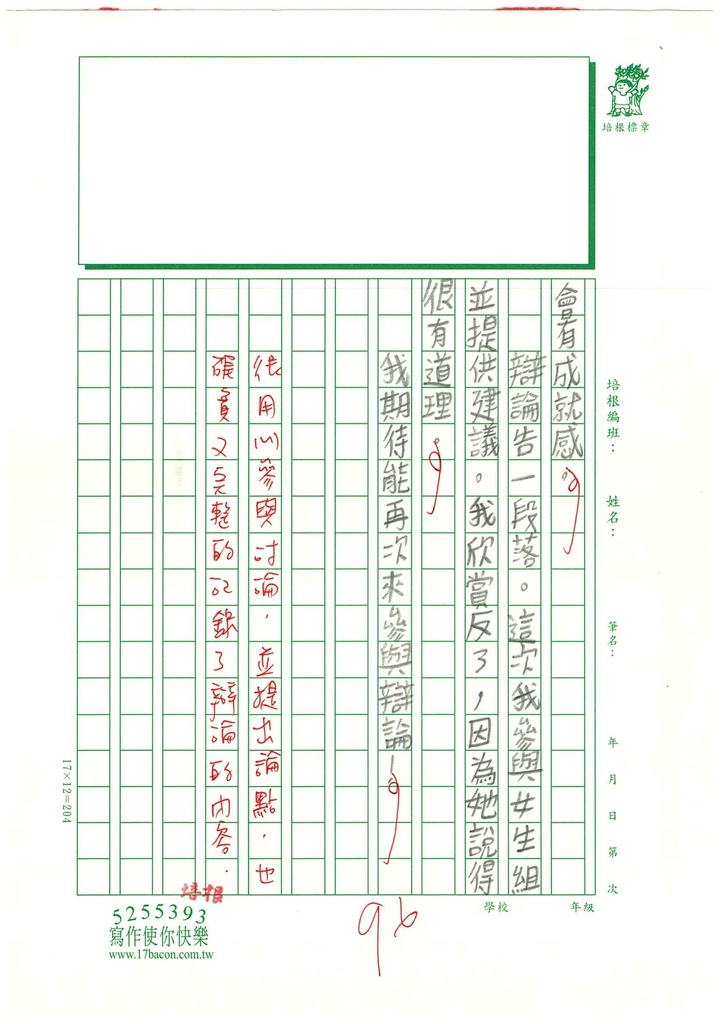 培根標章
培根編班：
姓名：
筆名：
年 月 日 第 次
學校 年級
會有成就感。
辯論告一段落。這次我參與女生組
並提供建議。我欣賞反了，因為她說得
很有道理
我期待能再次來參與辯論！
很用心參與討論，並提出論點，也
認真又完整的記錄了辯論的內容。
17×12=204
培根
5255393
寫作使你快樂
www.17bacon.com.tw
96